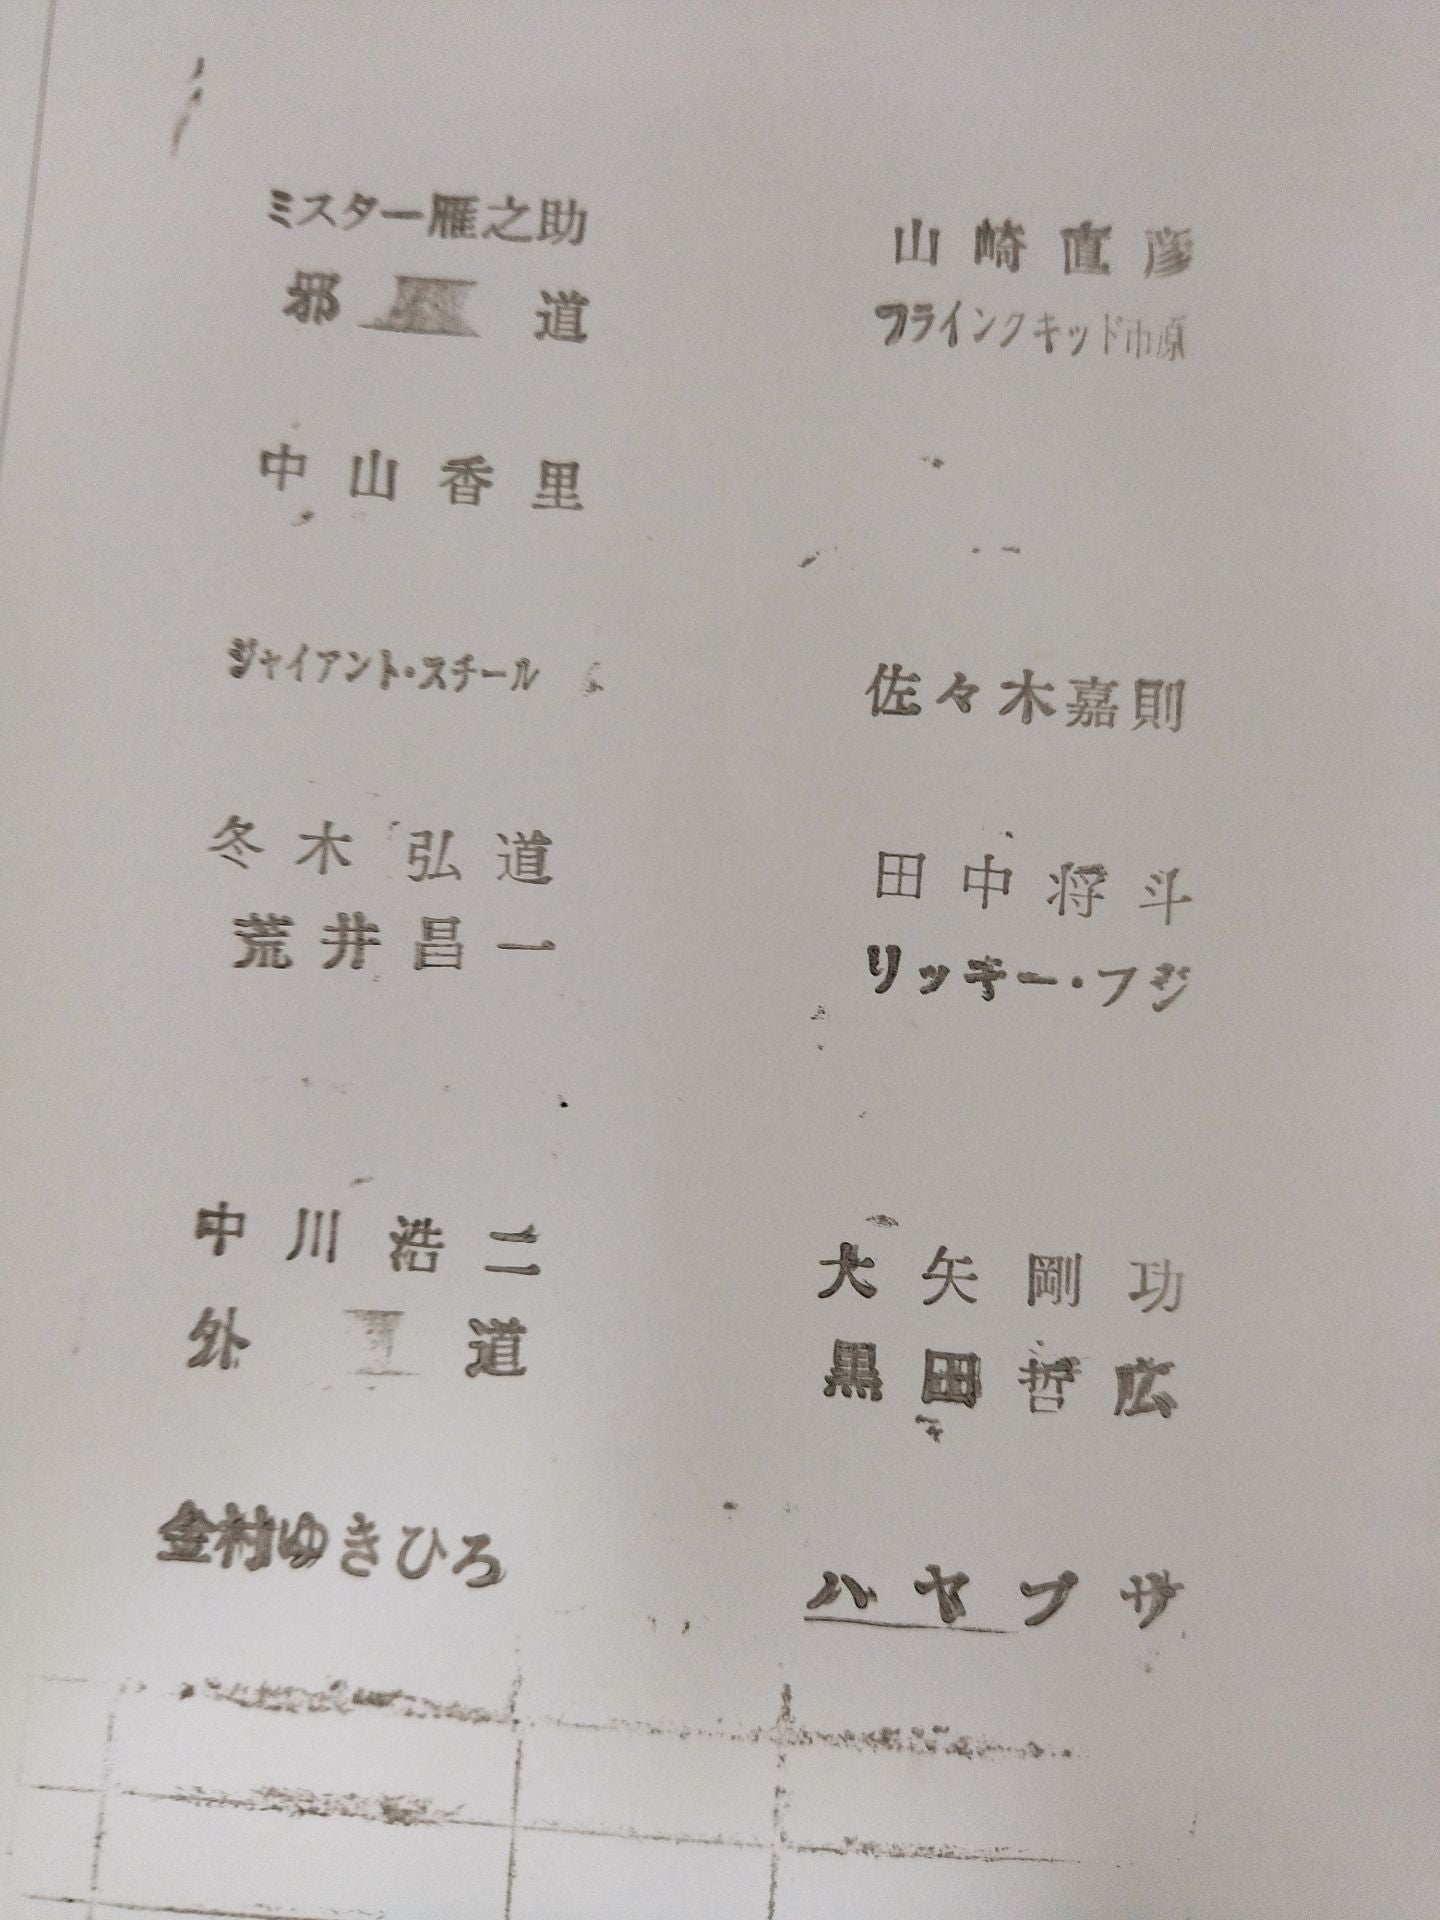 ミスター雁之助
山崎直彦
邪道
フラインクキッド市原
中山香里
ジャイアント・スチール
佐々木嘉則
冬木弘道
田中将斗
荒井昌一
リッキー・フジ
中川浩二
大矢剛功
外道
黒田哲広
金村ゆきひろ
ハヤブサ